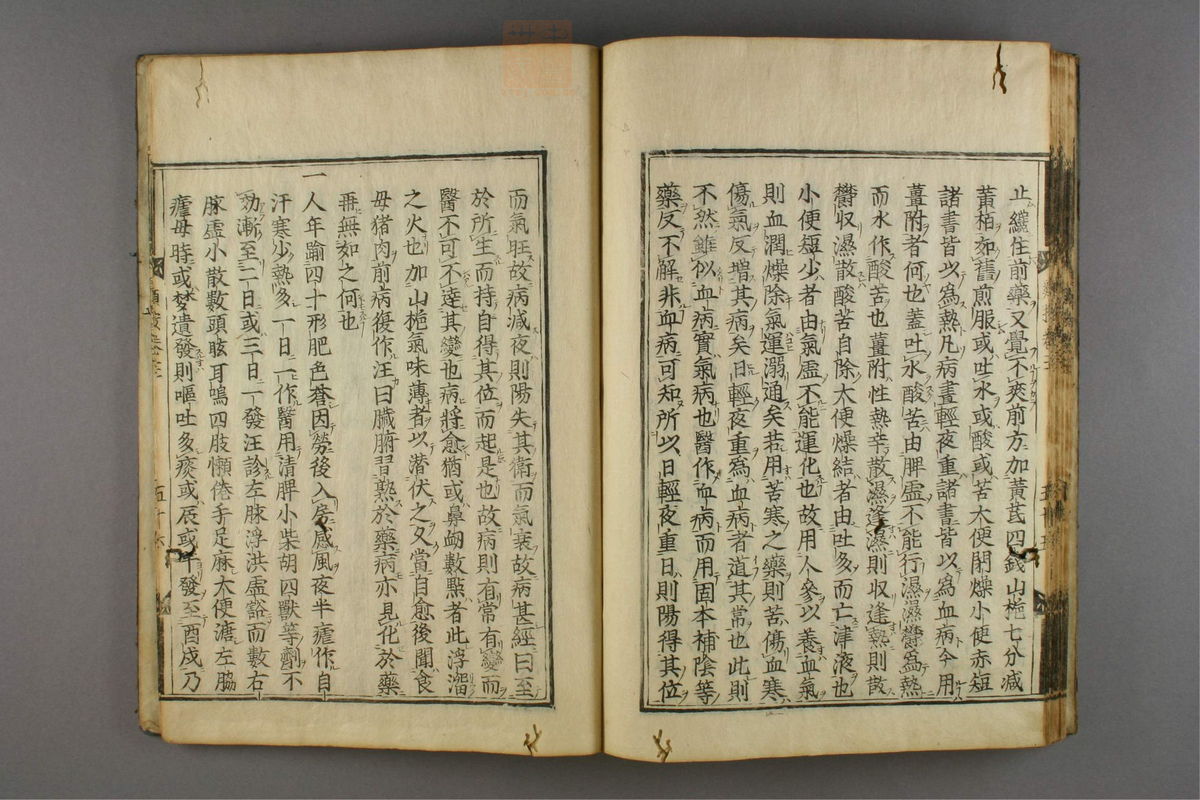 止纔住前藥又覺不爽前方加黃芪四錢山梔七分減
黃栢如舊煎服或吐水或酸或苦大便閉燥小便赤短
諸書皆以爲熱凡病晝輕夜重諸書皆以爲血病今用
薑附者何也蓋吐水酸苦由脾虛不能行濕濕欝爲熱
而水作酸苦也薑附性熱辛散濕逢濕則收逢熱則散
欝収濕散酸苦自除大便燥結者由吐多而亡津液也
小便短少者由氣虛不能運化也故用人參以養血氣
則血潤燥除氣運溺通矣若用苦寒之藥則苦傷血寒
傷氣反増其病矣日輕夜重爲血病者道其常也此則
不然雖似血病實氣病也醫作血病而用固本補陰等
藥反不解非血病可知所以日輕夜重日則陽得其位
而氣旺故病減夜則陽失其衛而氣衰故病甚經曰至
於所生而持自得其位而起是也故病則有常有變而
醫不可不達其變也病將愈猶或鼻衂數點者此浮溜
之火也加山梔氣味薄者以潛伏之久當自愈後聞食
母猪肉前病復作汪曰臟腑習熟於藥病亦見化於藥
再無如之何也
一人年踰四十形肥色蒼因勞後入房感風夜半瘧作自
汗寒少熱多一日二作醫用清脾小柴胡四獸等劑不
効漸至二日或三日一發汪診左脉浮洪虛豁而數右
脉虛小散數頭眩耳鳴四肢懶倦手足麻大便溏左脇
瘧母時或梦遺發則嘔吐多痰或辰或午發至酉戌乃